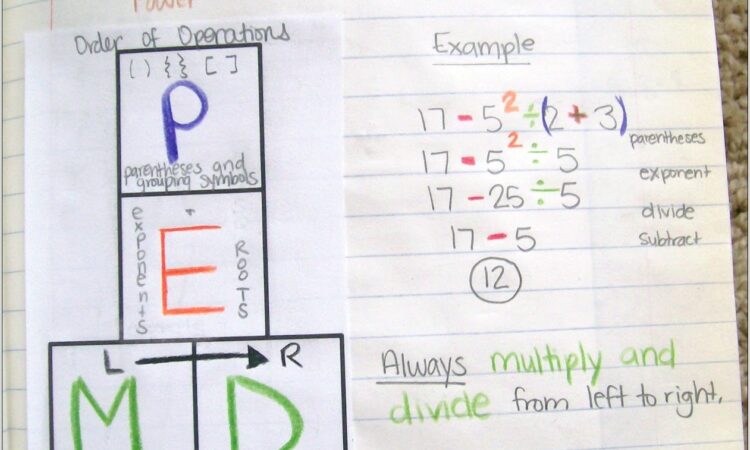 Power
Order of Operations
( ) { } [ ]
P
parentheses and
grouping symbols
exponents
+
E
ROOTS
L → R
M D
Example
17 - 5² ÷ (2 + 3)
parentheses
17 - 5² ÷ 5
exponent
17 - 25 ÷ 5
divide
17 - 5
subtract
12
Always multiply and
divide from left to right.